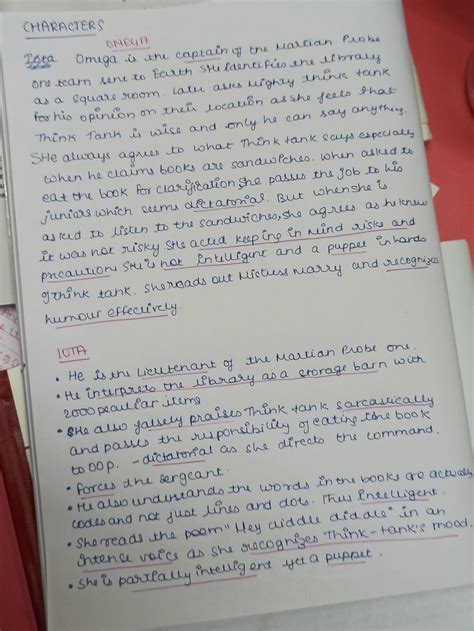 CHARACTERS
OMEGA
Iota Omega is the captain of the Martian Probe
one team sent to Earth. She identifies the library
as a square room. Later asks Mighty think tank
for his opinion on their location as she feels that
Think Tank is wise and only he can say anything.
She always agrees to what Think tank says especially
when he claims books are sandwiches. When asked to
eat the book for clarification she passes the job to his
juniors which seems dictatorial. But when she is
asked to listen to the sandwiches, she agrees as he knew
it was not risky. She acted keeping in mind risks and
precaution. She is not intelligent and a puppet in hands
of think tank. She reads out Mistress Marry and recognizes
humour effectively.
IOTA
• He is the Lieutenant of the Martian Probe one.
• He interprets the library as a storage barn with
2000 peculiar items
• She also falsely praises Think tank sarcastically
and passes the responsibility of eating the book
to OOP. - dictatorial as she directs the command.
• forces the sergeant.
• He also understands the words in the books are actually
codes and not just lines and dots. Thus intelligent.
• She reads the poem "Hey diddle diddle" in an
intense voice as she recognizes Think-tank's mood.
• She is partially intelligent yet a puppet.